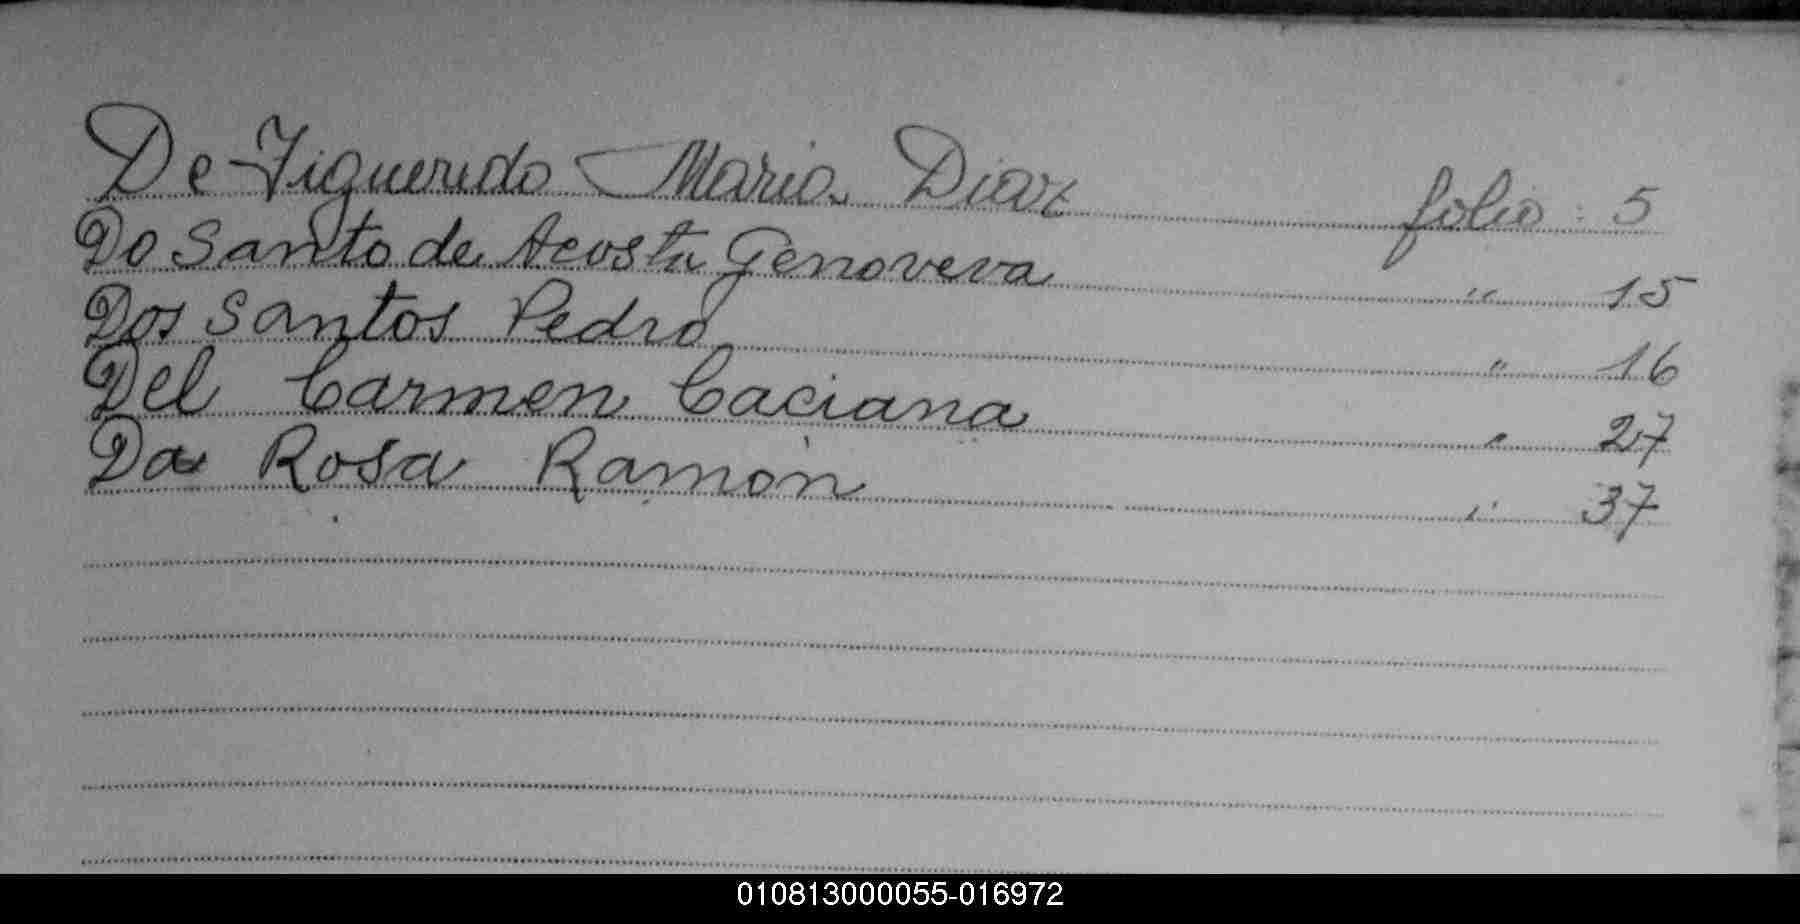 De Figueredo Maria Diaz folio: 5
Do Santo de Acosta Genoveva " 15
Dos Santos Pedro " 16
Del Carmen Caciana " 27
Da Rosa Ramón " 37
010813000055-016972